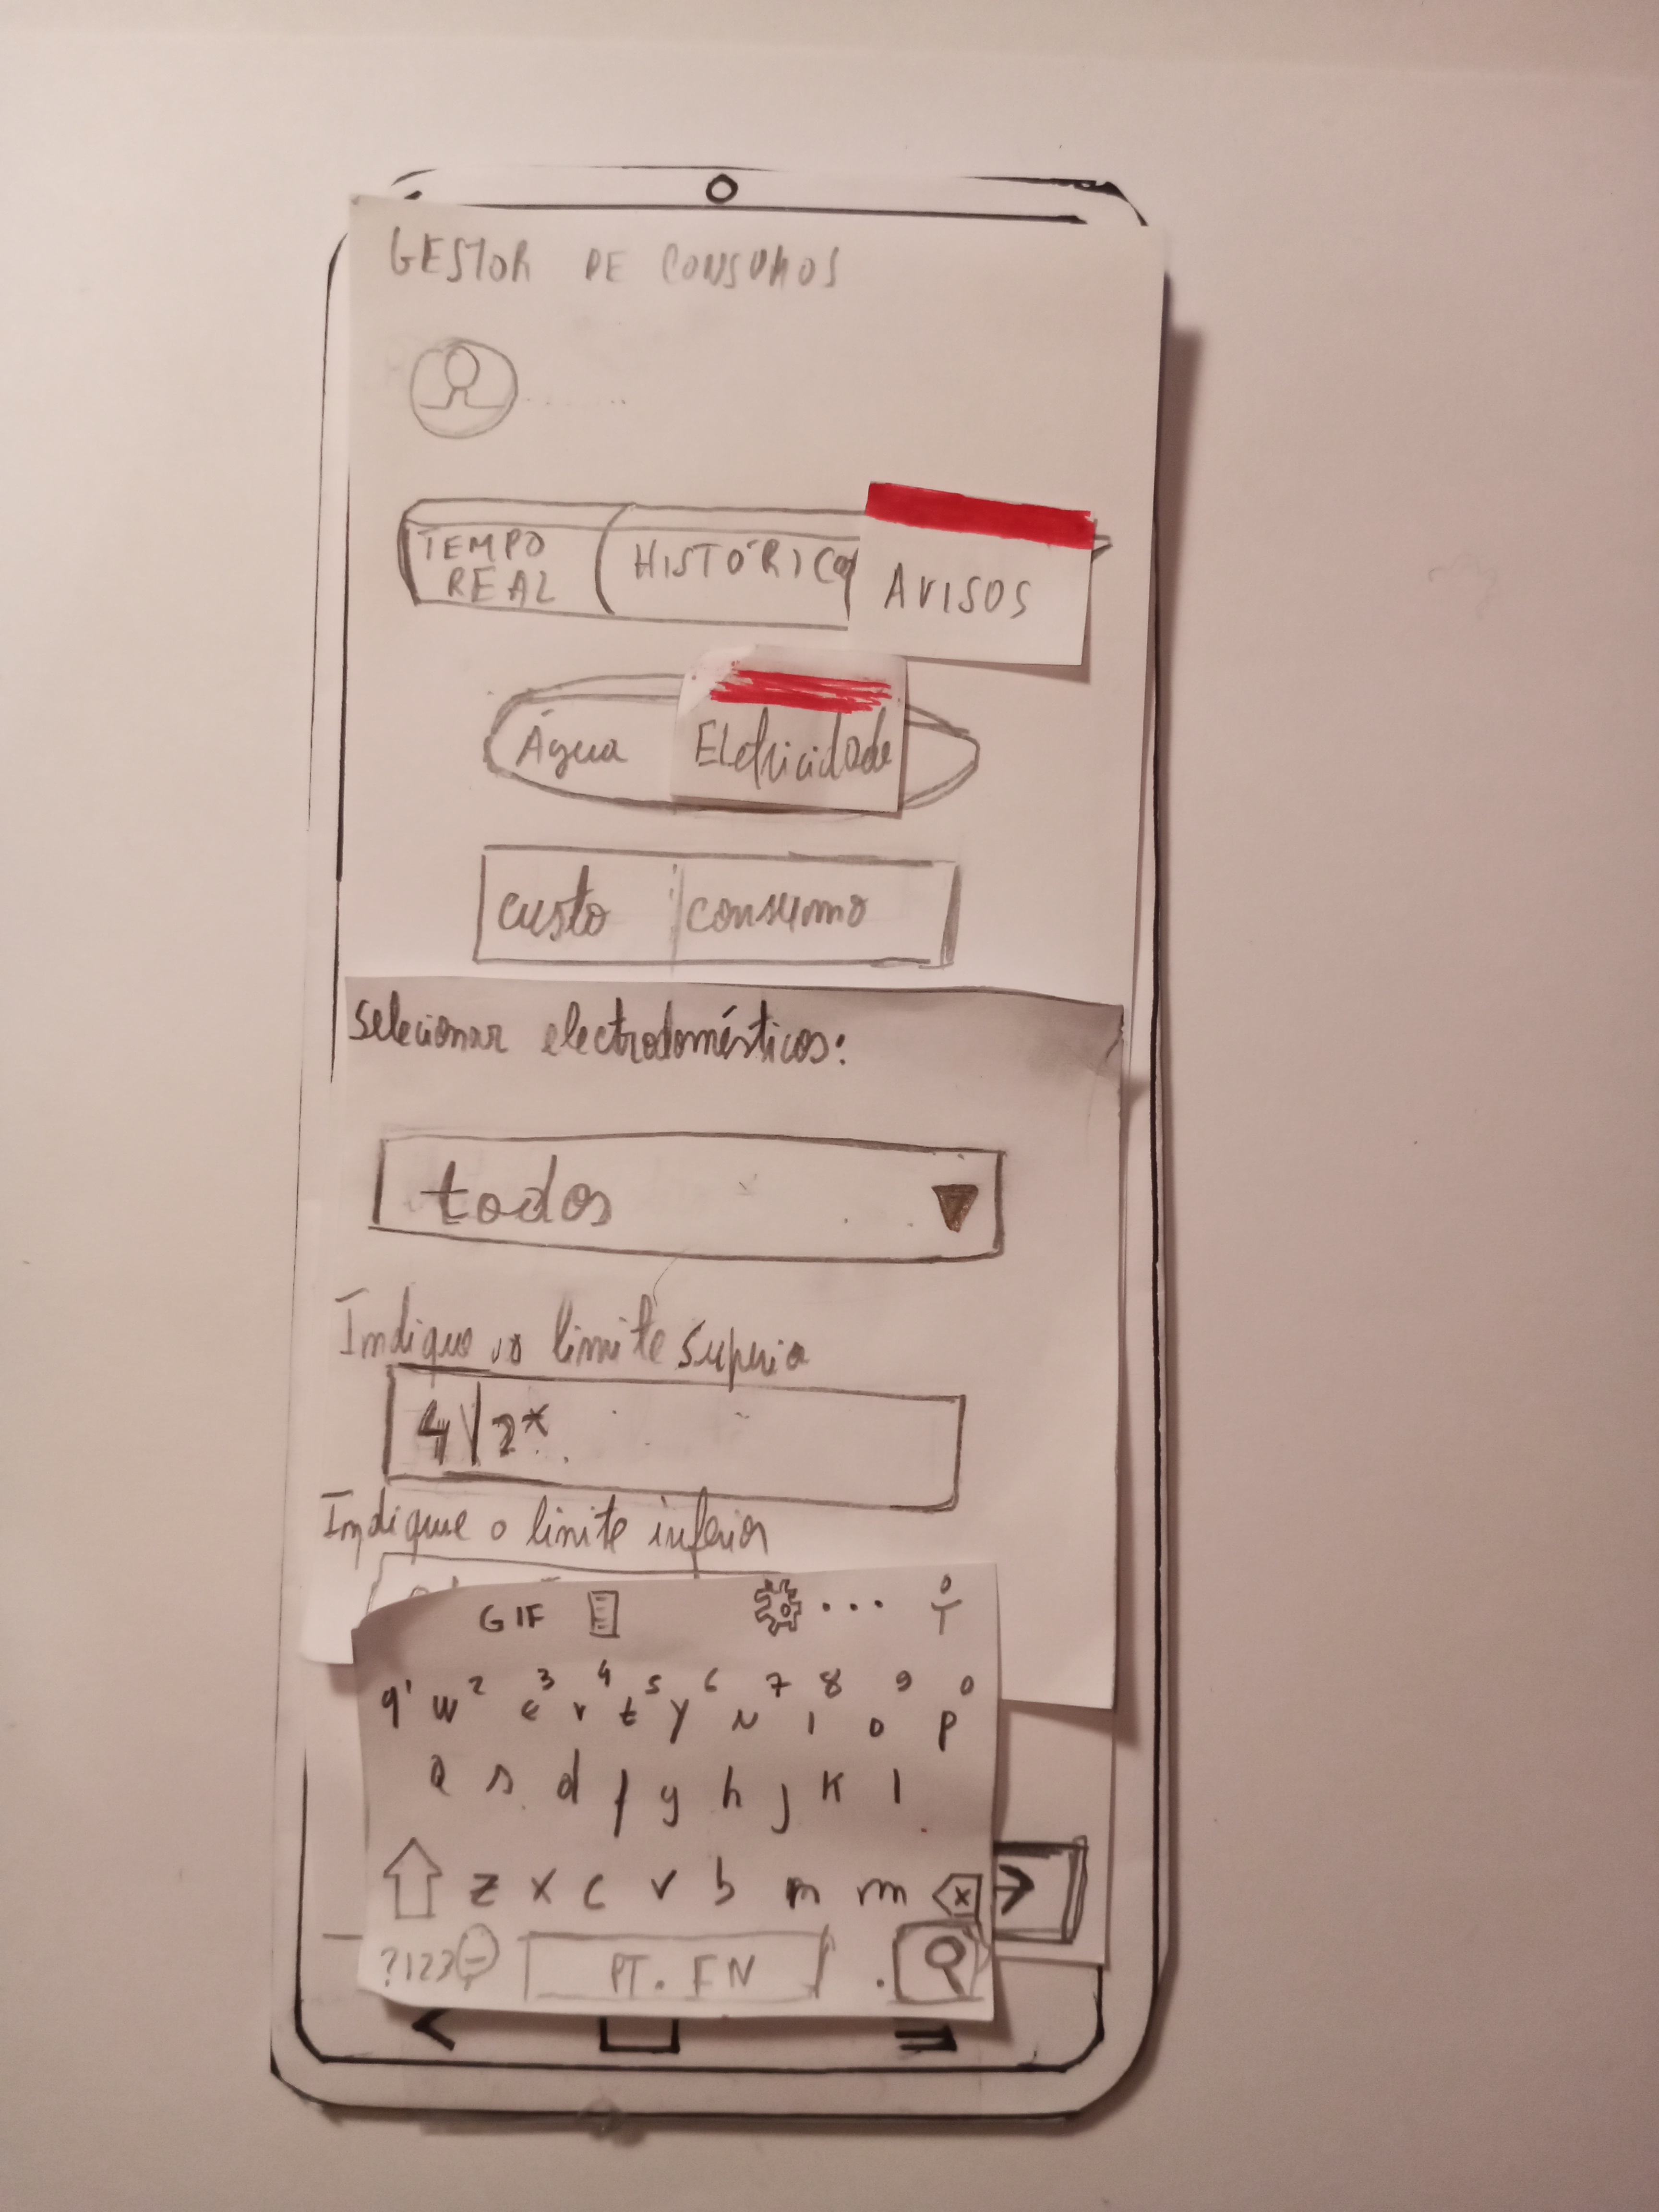 GESTOR DE CONSUMOS
TEMPO REAL
HISTÓRICO
AVISOS
Água
Eletricidade
custo
consumo
Selecionar electrodomésticos:
todos
Indique o limite superior
4 2*
Indique o limite inferior
GIF
q1 w2 e3 r4 t5 y6 u7 i8 o9 p0
a s d f g h j k l
z x c v b n m x
?123 PT. EN .